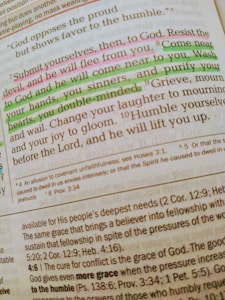 "God opposes the proud
but shows favor to the humble."
7 Submit yourselves, then, to God. Resist the
devil, and he will flee from you. 8 Come near
to God and he will come near to you. Wash
your hands, you sinners, and purify your
hearts, you double-minded. 9 Grieve, mourn
and wail. Change your laughter to mourning
and your joy to gloom. 10 Humble yourselves
before the Lord, and he will lift you up.
a 4 An allusion to covenant unfaithfulness; see Hosea 3:1.
b 5 Or that the
caused to dwell in us envies intensely; or that the Spirit he caused to dwell in
jealously
c 6 Prov. 3:34
available for His people's deepest needs (2 Cor. 12:9; Heb.
The same grace that brings a believer into fellowship with
sustain that fellowship in spite of the pressures of the wo
5:20; 2 Cor. 12:9; Heb. 4:16).
4:6 The cure for conflict is the grace of God. The good
God gives even more grace when the pressure increase
to the humble (Ps. 138:6; Prov. 3:34; 1 Pet. 5:5). Go
the prayers of those who humbly reques